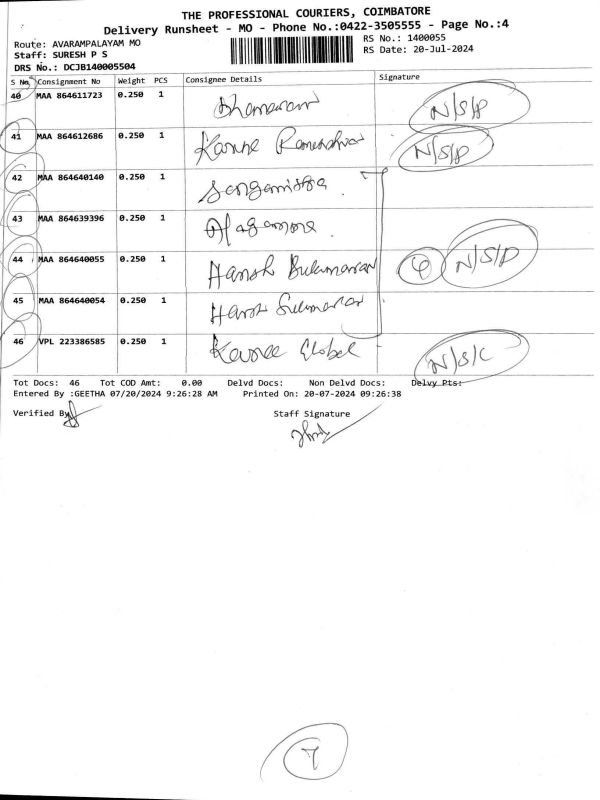 THE PROFESSIONAL COURIERS, COIMBATORE
Delivery Runsheet - MO - Phone No.:0422-3505555 - Page No.:4
Route: AVARAMPALAYAM MO
RS No.: 1400055
Staff: SURESH P S
RS Date: 20-Jul-2024
DRS No.: DCJB140005504
S No. Consignment No Weight PCS Consignee Details Signature
40 MAA 864611723 0.250 1 N/S/P
41 MAA 864612686 0.250 1 N/S/P
42 MAA 864640140 0.250 1
43 MAA 864639396 0.250 1
44 MAA 864640055 0.250 1 Harish N/S/P
45 MAA 864640054 0.250 1
46 VPL 223386585 0.250 1 N/S/C
Tot Docs: 46 Tot COD Amt: 0.00 Delvd Docs: Non Delvd Docs: Delvy Pts:
Entered By :GEETHA 07/20/2024 9:26:28 AM Printed On: 20-07-2024 09:26:38
Verified By
Staff Signature
7